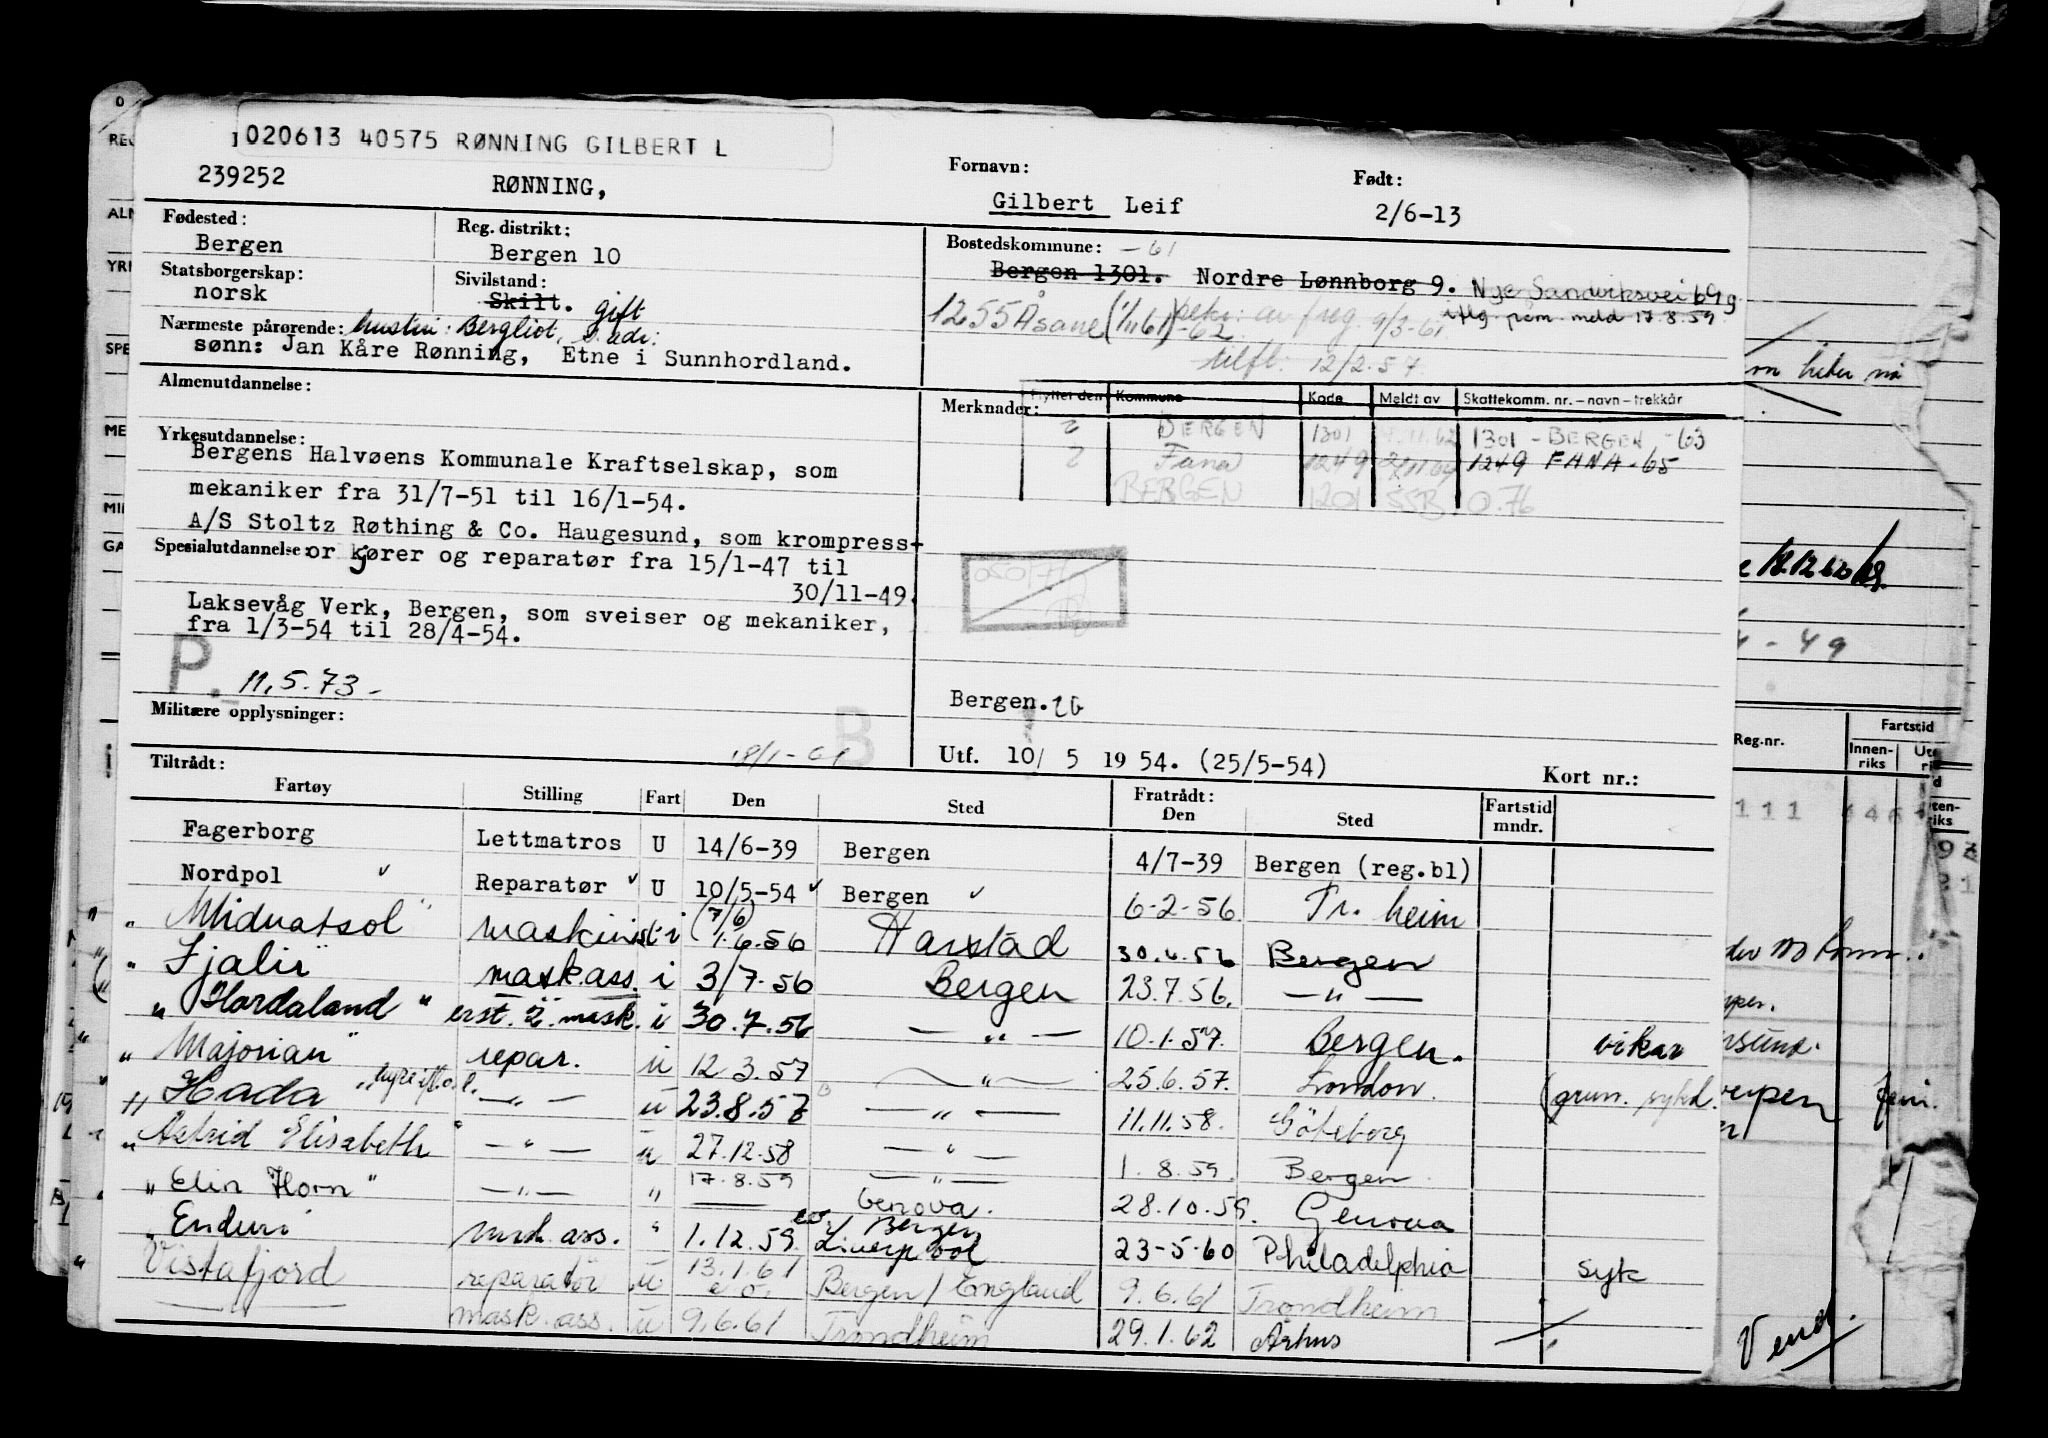 020613 40575 RØNNING GILBERT L
239252 RØNNING,
Fornavn: Født:
Gilbert Leif 2/6-13
Fødested: Reg. distrikt: Bostedskommune: -61
Bergen Bergen 10 Bergen 1301. Nordre Lønnborg 9. Nye Sandviksvei 69g
Statsborgerskap: Sivilstand:
norsk Skilt. gift
iflg. pem. meld 17.8.59
1255 Åsane (1/1161) -62 av freg. 9/3-61
Nærmeste pårørende: hustru: Bergliot, s. adr:
sønn: Jan Kåre Rønning, Etne i Sunnhordland.
tilfl. 12/2.57
Almenutdannelse:
Merknader: Flyttet den Kommune Kode Meldt av Skattekomm. nr. – navn – trekkår
BERGEN 1301 1301 - BERGEN -63
Fana 1249 1249 FANA - 65
BERGEN 1201 SSB 0.76
Yrkesutdannelse:
Bergens Halvøens Kommunale Kraftselskap, som
mekaniker fra 31/7-51 til 16/1-54.
A/S Stoltz Røthing & Co. Haugesund, som krompress-
Spesialutdannelse: or kører og reparatør fra 15/1-47 til
30/11-49.
Laksevåg Verk, Bergen, som sveiser og mekaniker,
fra 1/3-54 til 28/4-54.
P. 11.5.73 -
Bergen.
Militære opplysninger:
B
Utf. 10/ 5 19 54. (25/5-54) Kort nr.:
Tiltrådt: Fratrådt:
Fartøy Stilling Fart Den Sted Den Sted Fartstid mndr.
Fagerborg Lettmatros U 14/6-39 Bergen 4/7-39 Bergen (reg.bl)
Nordpol Reparatør U 10/5-54 Bergen 6-2-56. Tr. heim
"Midnatsol" maskinist i (7/6) 1.6.56 Harstad 30.6.56 Bergen
"Fjalir" mask ass. i 3/7-56 Bergen 23.7.56. — " —
"Hordaland" erst. 2. mask. i 30.7.56 — " — 10.1.57. Bergen. vikar
"Majorian" repar. u 12.3.57 — " — 25.6.57. London.
"Hada" — " — u 23.8.57 — " — 11.11.58. Göteborg
"Astrid Elisabeth" — " — u 27.12.58 — " — 1.8.59. Bergen
"Elin Horn" — " — " 17.8.59 — " — 28.10.59. Genova
Genova.
"Enduro" mask. ass. " 1.12.59 Bergen Liverpool 23-5-60 Philadelphia syk
Vistafjord reparatör u 13.1.61 e.o. Bergen / England 9.6.61 Trondheim
mask. ass. u 9.6.61 Trondheim 29.1.62 Århus
Reg.nr. Fartstid
Innen-riks
111
- 49
Vend.